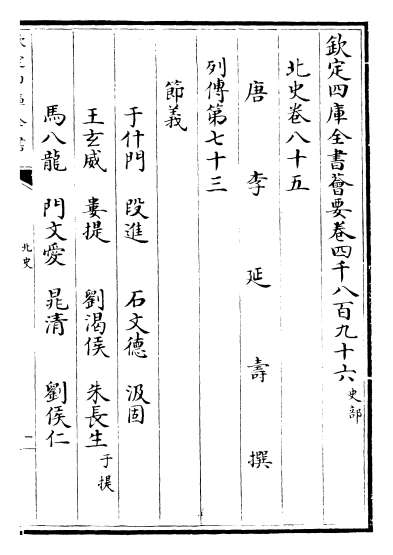 欽定四庫全書薈要卷四千八百九十六 史部
北史卷八十五
唐 李 延 壽 撰
列傳第七十三
節義
于什門 段進 石文德 汲固
王玄威 婁提 劉渴侯 朱長生 于提
馬八龍 門文愛 晁清 劉侯仁
北史